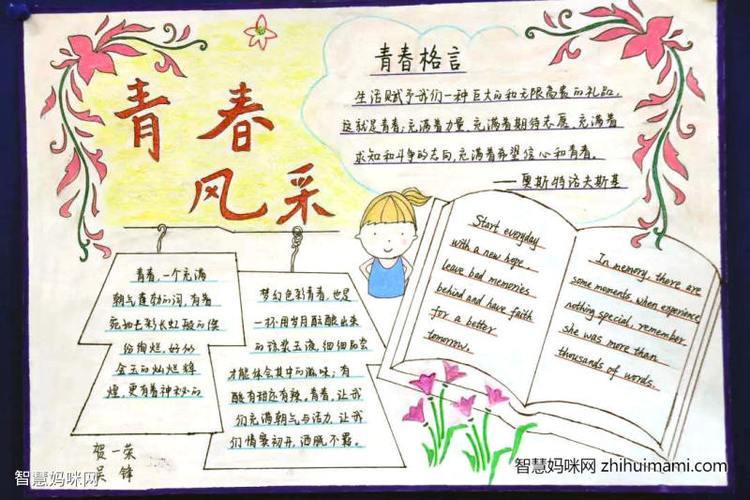 青春
风采
青春格言
生活赋予我们一种巨大的和无限高贵的礼品,
这就是青春:充满着力量,充满着期待志愿,充满着
求知和斗争的志向,充满着希望信心和青春。
——奥斯特洛夫斯基
青春,一个充满
朝气蓬勃的词,有着
宛如七彩长虹般的缤
纷绚烂,好似
金玉的灿烂辉
煌,更有着神秘的
梦幻色彩青春,也是
一杯用岁月酝酿出来
的琼浆玉液,细细品尝
才能体会其中的滋味:有
酸有甜还有辣。青春,让我
们充满朝气与活力,让我
们情窦初开,洒脱不羁。
Start everyday
with a new hope,
leave bad memories
behind and have faith
for a better
tomorrow.
In memory, there are
some moments, when experience
nothing special, remember
she was more than
thousands of words.
贺一荣
吴锋
智慧妈咪网
智慧妈咪网 zhihuimami.com